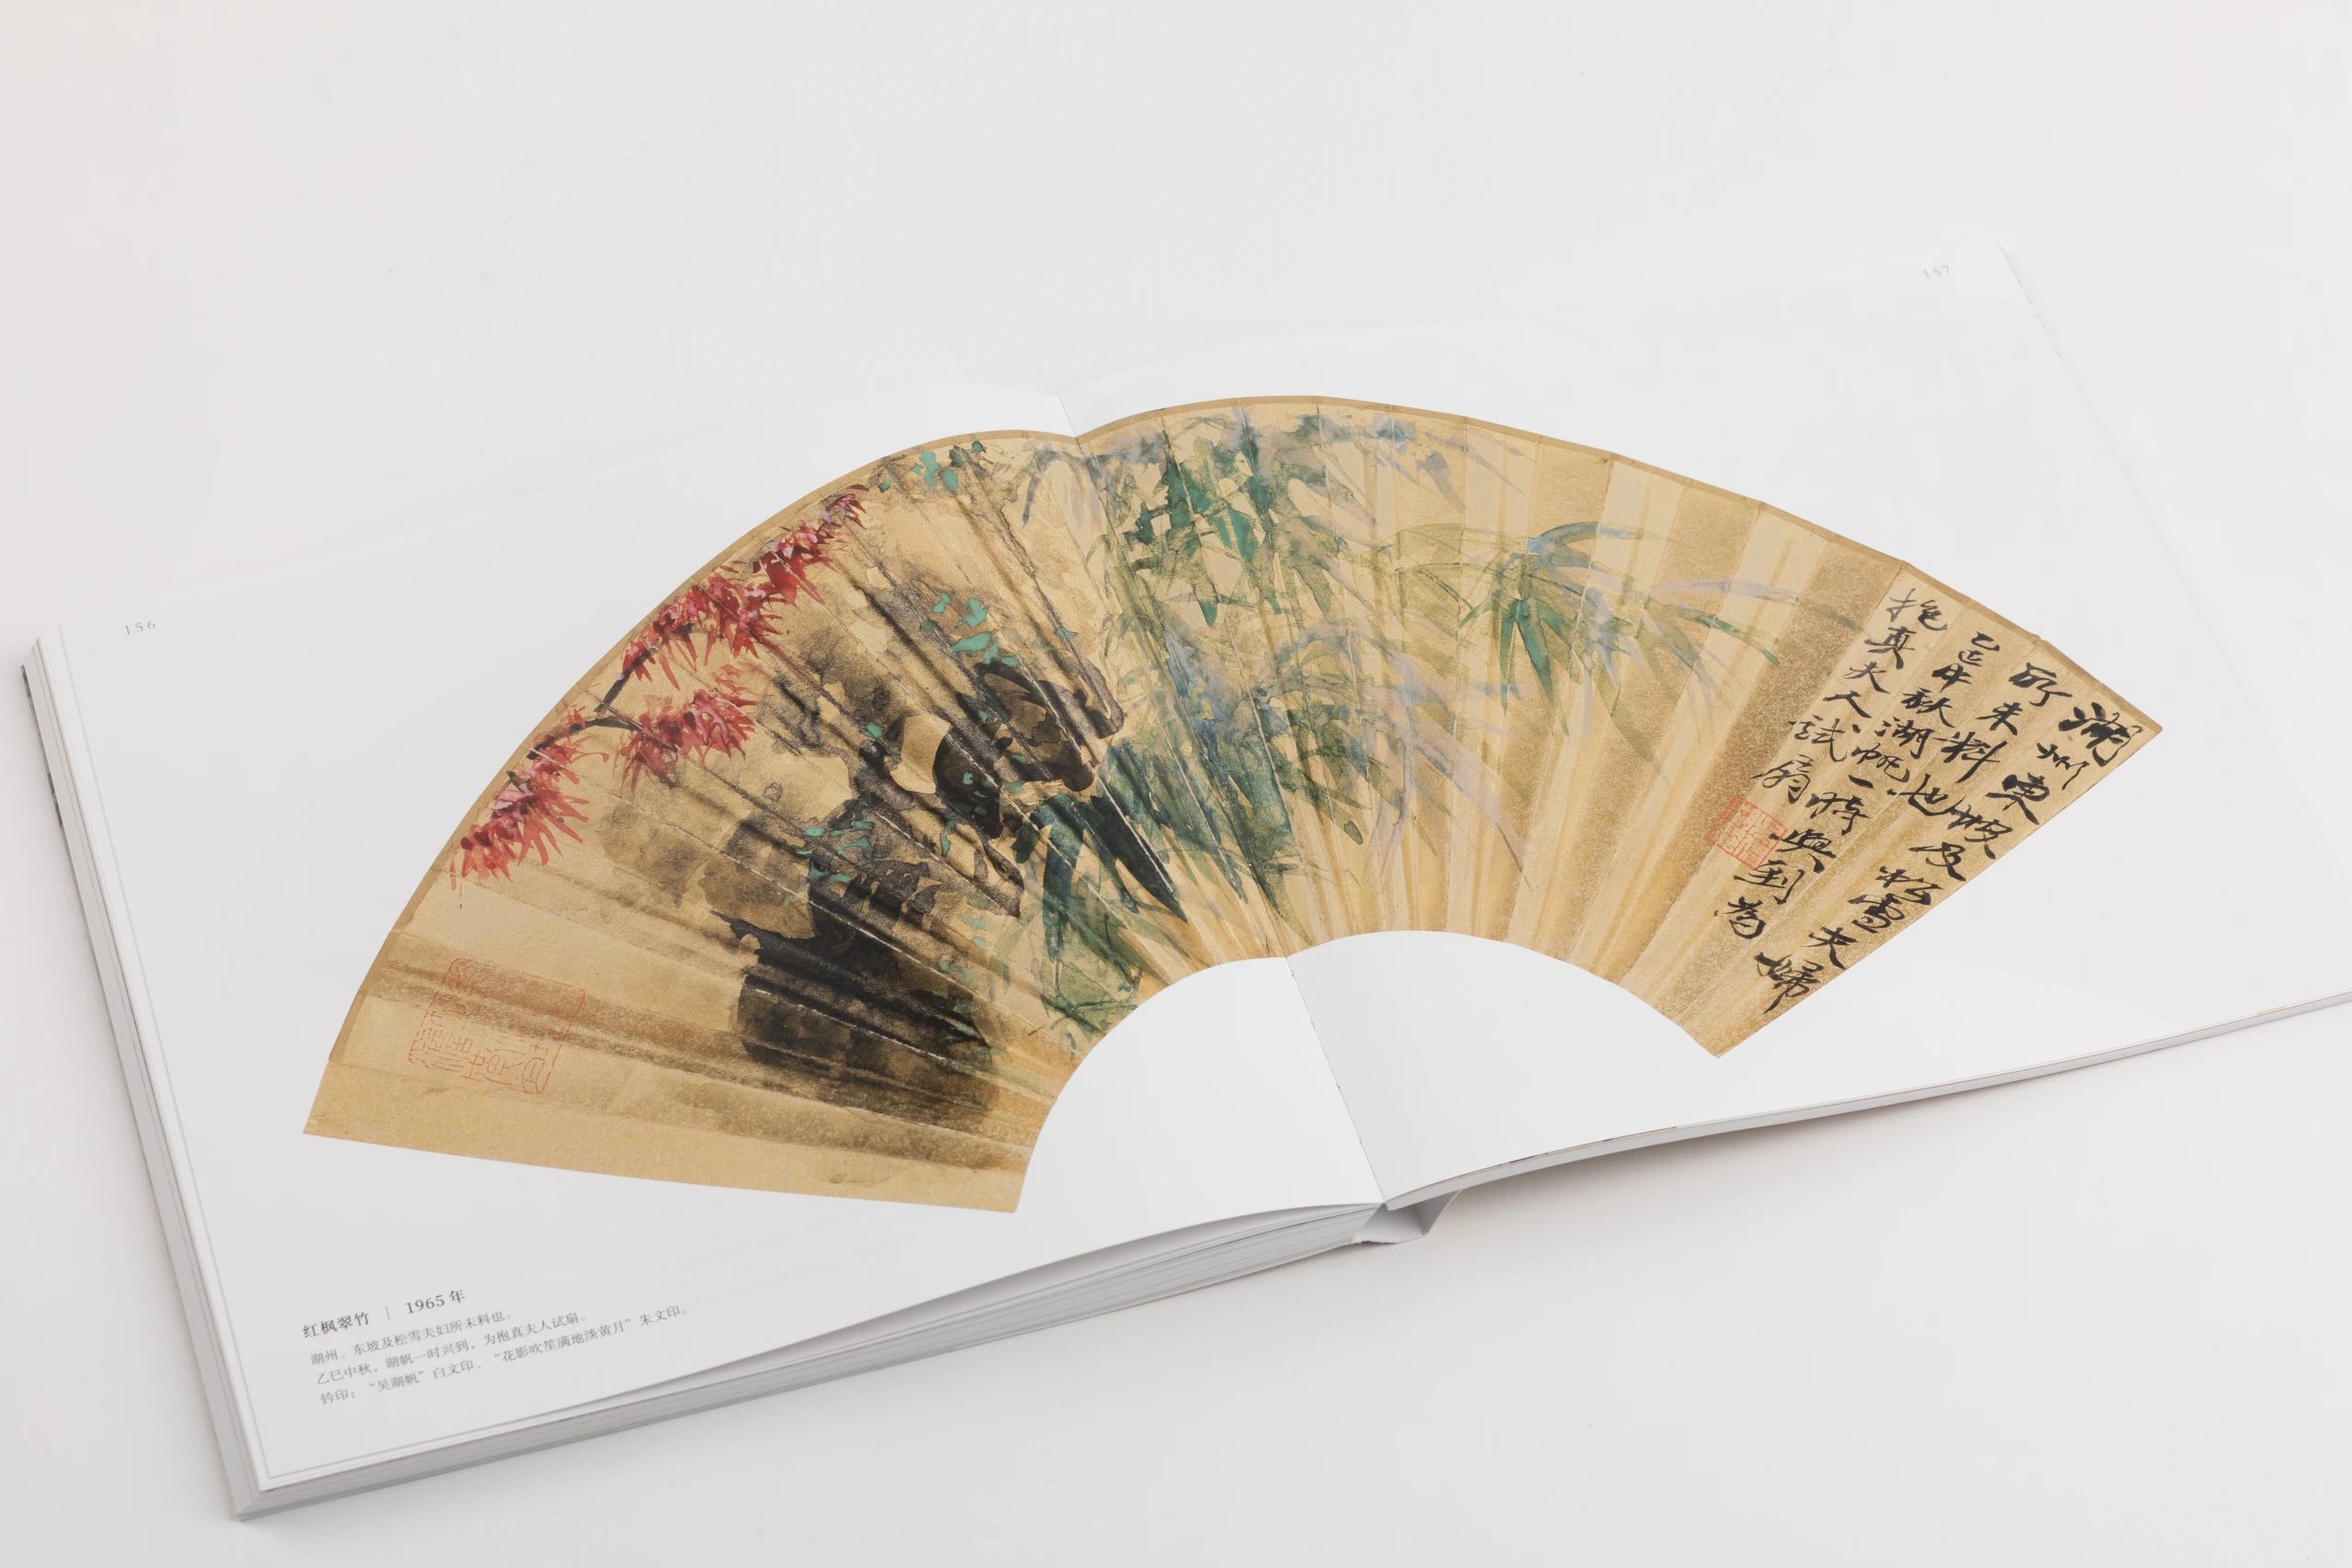 156
157
湖州東坡及松雪夫婦
所未料也
乙巳中秋湖帆一時興到為
抱真夫人試扇
红枫翠竹 | 1965 年
湖州、东坡及松雪夫妇所未料也。
乙巳中秋,湖帆一时兴到,为抱真夫人试扇。
钤印:“吴湖帆”白文印、“花影吹笙满地淡黄月”朱文印。